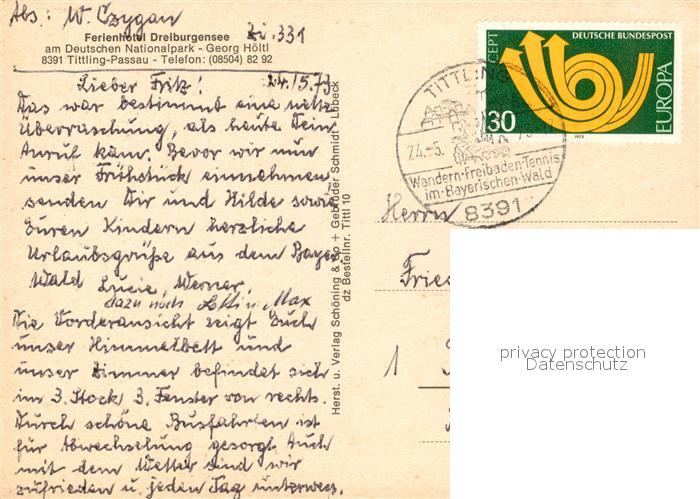 Abs: W. Czygan
Zi. 331
Ferienhotel Dreiburgensee
am Deutschen Nationalpark - Georg Höltl
8391 Tittling-Passau - Telefon: (08504) 82 92
Lieber Fritz! 24./5.73
Das war bestimmt eine nette
Überraschung, als heute Dein
Anruf kam. Bevor wir nun
unser Frühstück einnehmen
senden Dir und Hilde sowie
Euren Kindern herzliche
Urlaubsgrüße aus dem Bayer.
Wald Lucie, Werner,
dazu noch Max
Die Vorderansicht zeigt Euch
unser Himmelbett und
unser Zimmer befindet sich
im 3. Stock 3. Fenster von rechts.
Durch schöne Busfahrten ist
für Abwechselung gesorgt. Auch
mit dem Wetter sind wir
zufrieden u. jeden Tag unterwegs.
Herst. u. Verlag Schöning & Co + Gebrüder Schmidt - Lübeck
dz Bestellnr. Tittl 10
TITTLING
24.-5.
Wandern-Freibaden-Tennis
im-Bayerischen-Wald
8391
CEPT
DEUTSCHE BUNDESPOST
EUROPA
30
1973
Herrn
Fried
1
privacy protection
Datenschutz